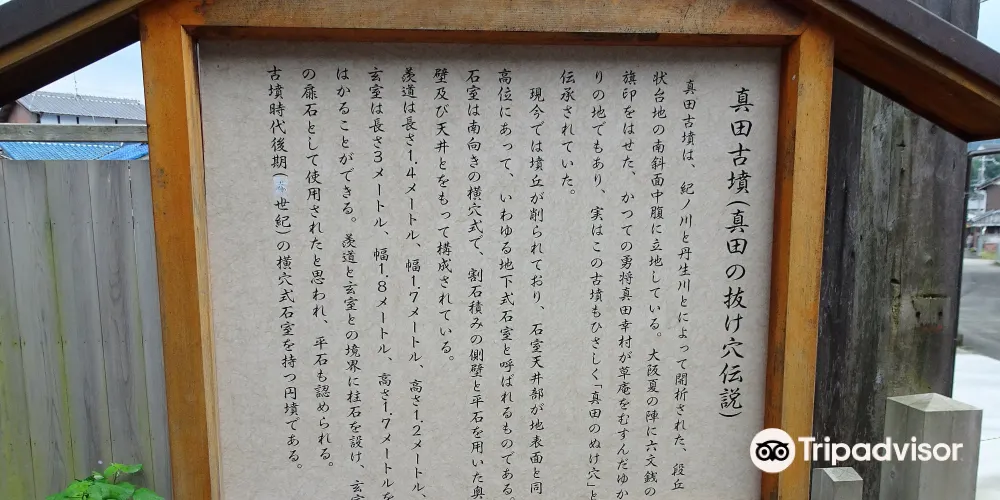 真田古墳(真田の抜け穴伝説)
真田古墳は、紀ノ川と丹生川とによって開析された、段丘
状台地の南斜面中腹に立地している。大阪夏の陣に六文銭の
旗印をはせた、かつての勇将真田幸村が草庵をむすんだゆか
りの地でもあり、実はこの古墳もひさしく「真田のぬけ穴」と
伝承されていた。
現今では墳丘が削られており、石室天井部が地表面と同
高位にあって、いわゆる地下式石室と呼ばれるものである。
石室は南向きの横穴式で、割石積みの側壁と平石を用いた奥
壁及び天井とをもって構成されている。
羨道は長さ1.4メートル、幅1.7メートル、高さ1.2メートル、
玄室は長さ3メートル、幅1.8メートル、高さ1.7メートルを
はかることができる。羨道と玄室との境界に柱石を設け、玄
の扉石として使用されたと思われ、平石も認められる。
古墳時代後期(世紀)の横穴式石室を持つ円墳である。
Tripadvisor